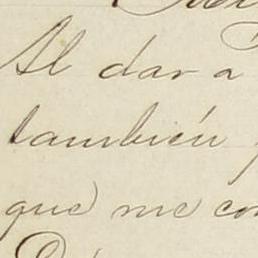 Al dar a
también
que me con